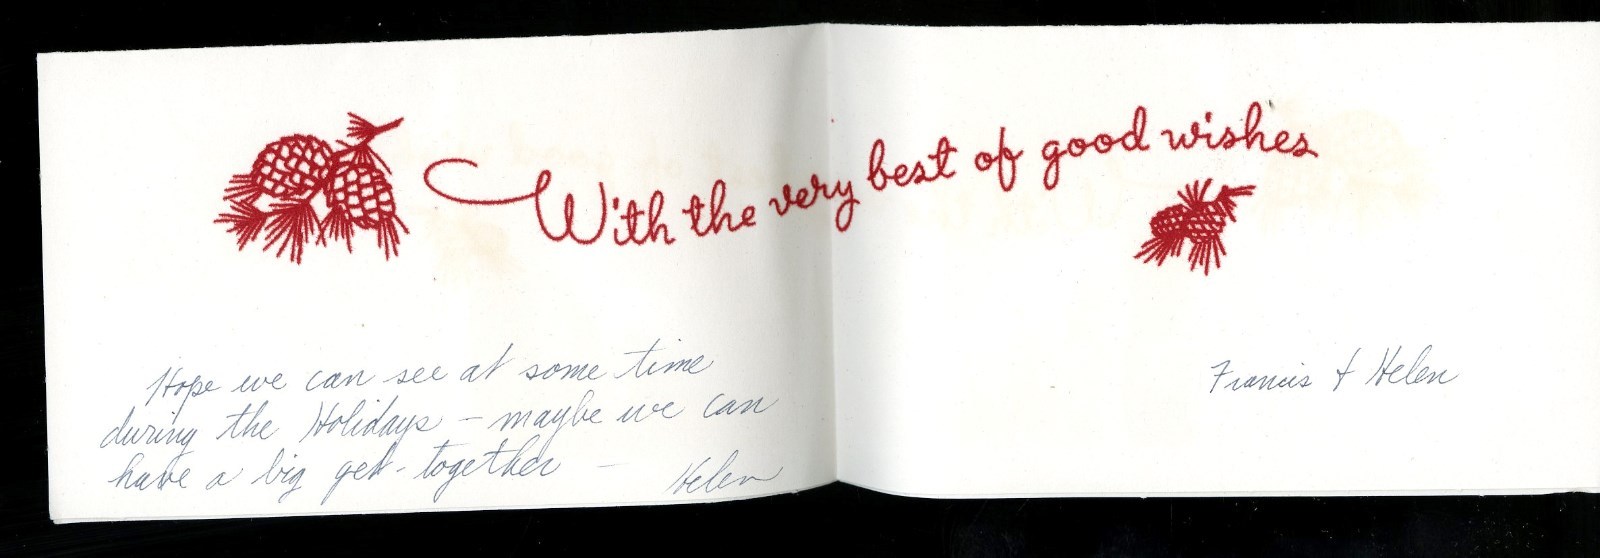 With the very best of good wishes
Hope we can see at some time
during the Holidays - maybe we can
have a big get-together -
Helen
Francis & Helen